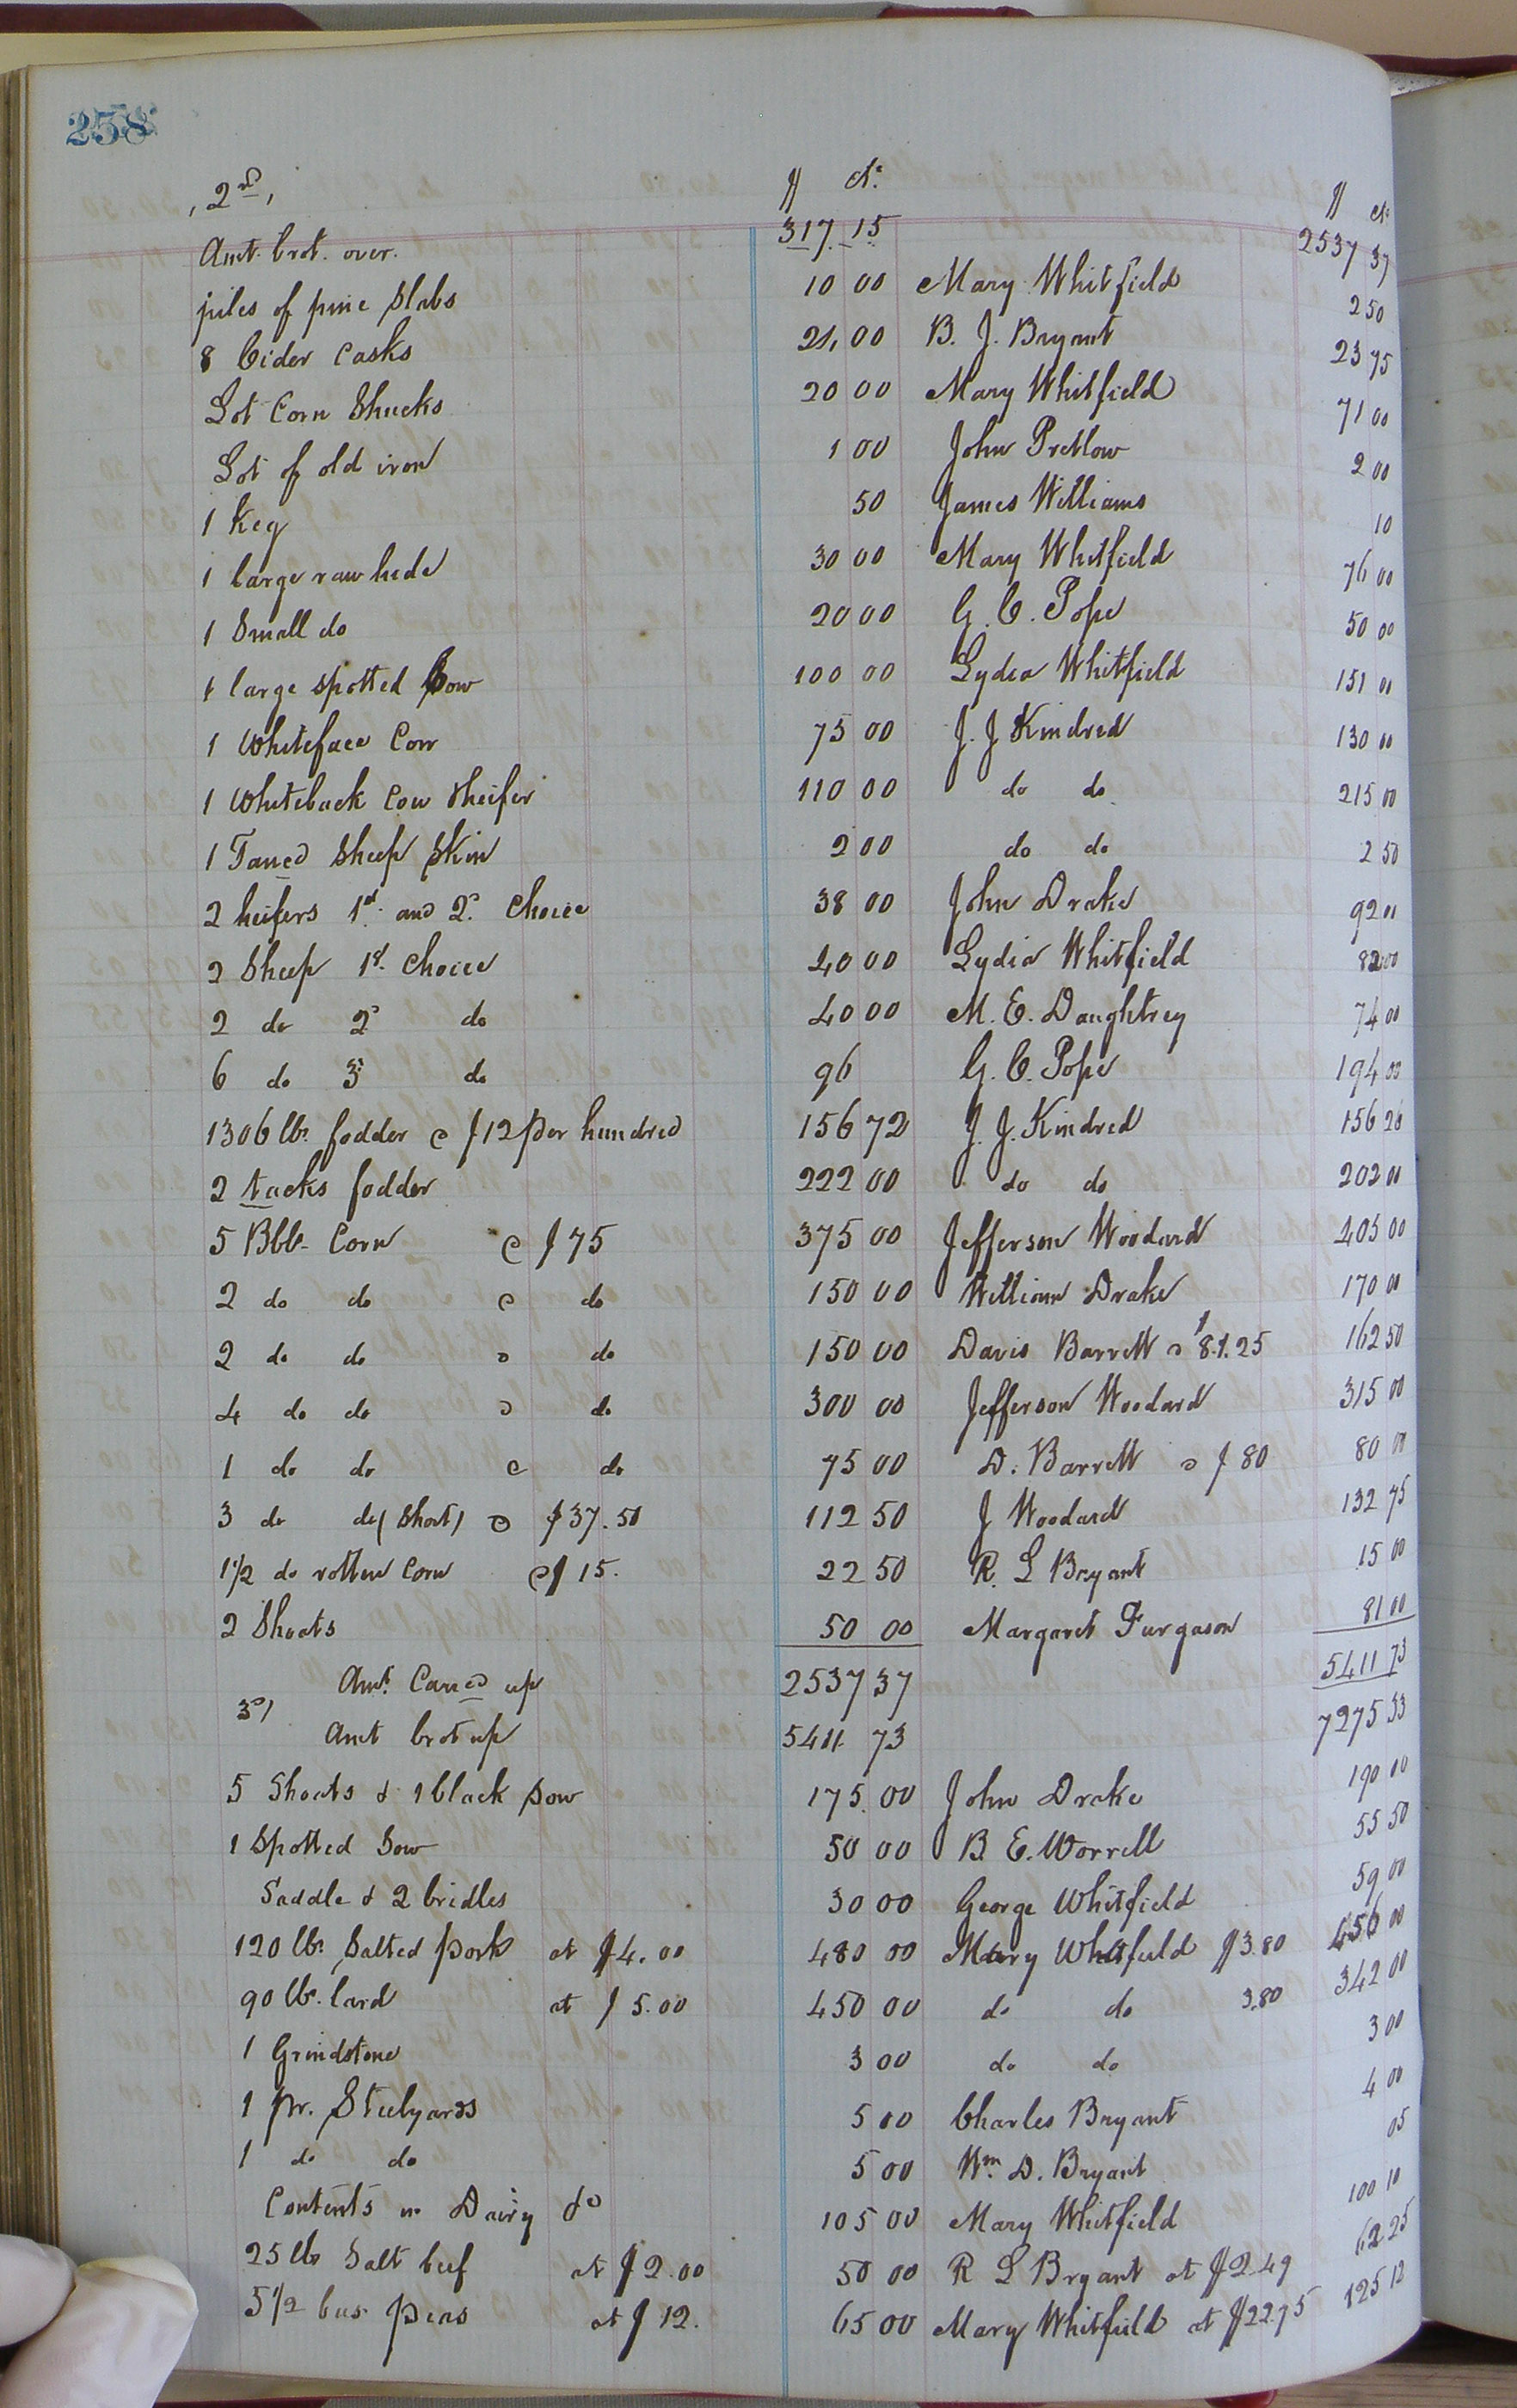 258
2nd,
$ cts. $ cts
Amt. brot. over. 317.15 2537 37
piles of pine Slabs 10 00 Mary Whitfield 2 50
8 Cider Casks 24,00 B. J. Bryant 23 75
Lot Corn Shucks 20 00 Mary Whitfield 71 00
Lot of old iron 1 00 John Pretlow 2 00
1 Keg 50 James Williams 10
1 large raw hide 30 00 Mary Whitfield 76 00
1 Small do 20 00 G. C. Pope 50 00
1 large spotted Cow 100 00 Lydia Whitfield 151 00
1 Whiteface Cow 75 00 J. J. Kindred 130 00
1 Whiteback Cow & heifer 110 00 do do 215 00
1 Taned Sheep Skin 2 00 do do 2 50
2 heifers 1st. and 2d. Choice 38 00 John Drake 92 00
2 Sheep 1st. Choice 40 00 Lydia Whitfield 82 00
2 do 2d do 40 00 M. E. Daughtrey 74 00
6 do 3d do 96 G. C. Pope 194 00
1306 lbs. fodder @ $12 per hundred 156 72 J. J. Kindred 156 20
2 tacks fodder 222 00 do do 202 00
5 Bbls. Corn @ $75 375 00 Jefferson Woodard 405 00
2 do do @ do 150 00 William Drake 170 00
2 do do @ do 150 00 Davis Barrett @ 81.25 162 50
4 do do @ do 300 00 Jefferson Woodard 315 00
1 do do @ do 75 00 D. Barrett @ $80 80 00
3 do do (Short) @ $37.50 112 50 J Woodard 132 75
1 1/2 do rotten Corn @ $15. 22 50 R. L Bryant 15 00
2 Shoats 50 00 Margaret Furgason 81 00
Amt. Cared up 2537 37 5411 73
3d) Amt brot up 5411 73 7275 33
5 Shoats & 1 black Sow 175.00 John Drake 190 00
1 Spotted Sow 50 00 B. E. Worrell 55 50
Saddle & 2 bridles 30 00 George Whitfield 59 00
120 lbs. Salted pork at $4.00 480 00 Mary Whitfield $3.80 456 00
90 lbs. lard at $5.00 450 00 do do 3.80 342 00
1 Grindstone 3 00 do do 3 00
1 pr. Steelyards 5 00 Charles Bryant 4 00
1 do do 5 00 Wm. D. Bryant 05
Contents in Dairy 105 00 Mary Whitfield 100 10
25 lbs Salt beef at $2.00 50 00 R L Bryant at $2.49 62 25
5 1/2 bus. peas at $12. 65 00 Mary Whitfield at $22.75 125 12